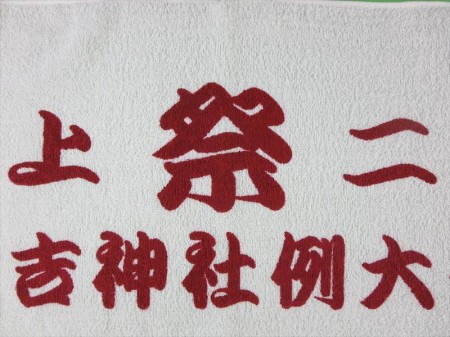 上 祭 二
吉神社例大